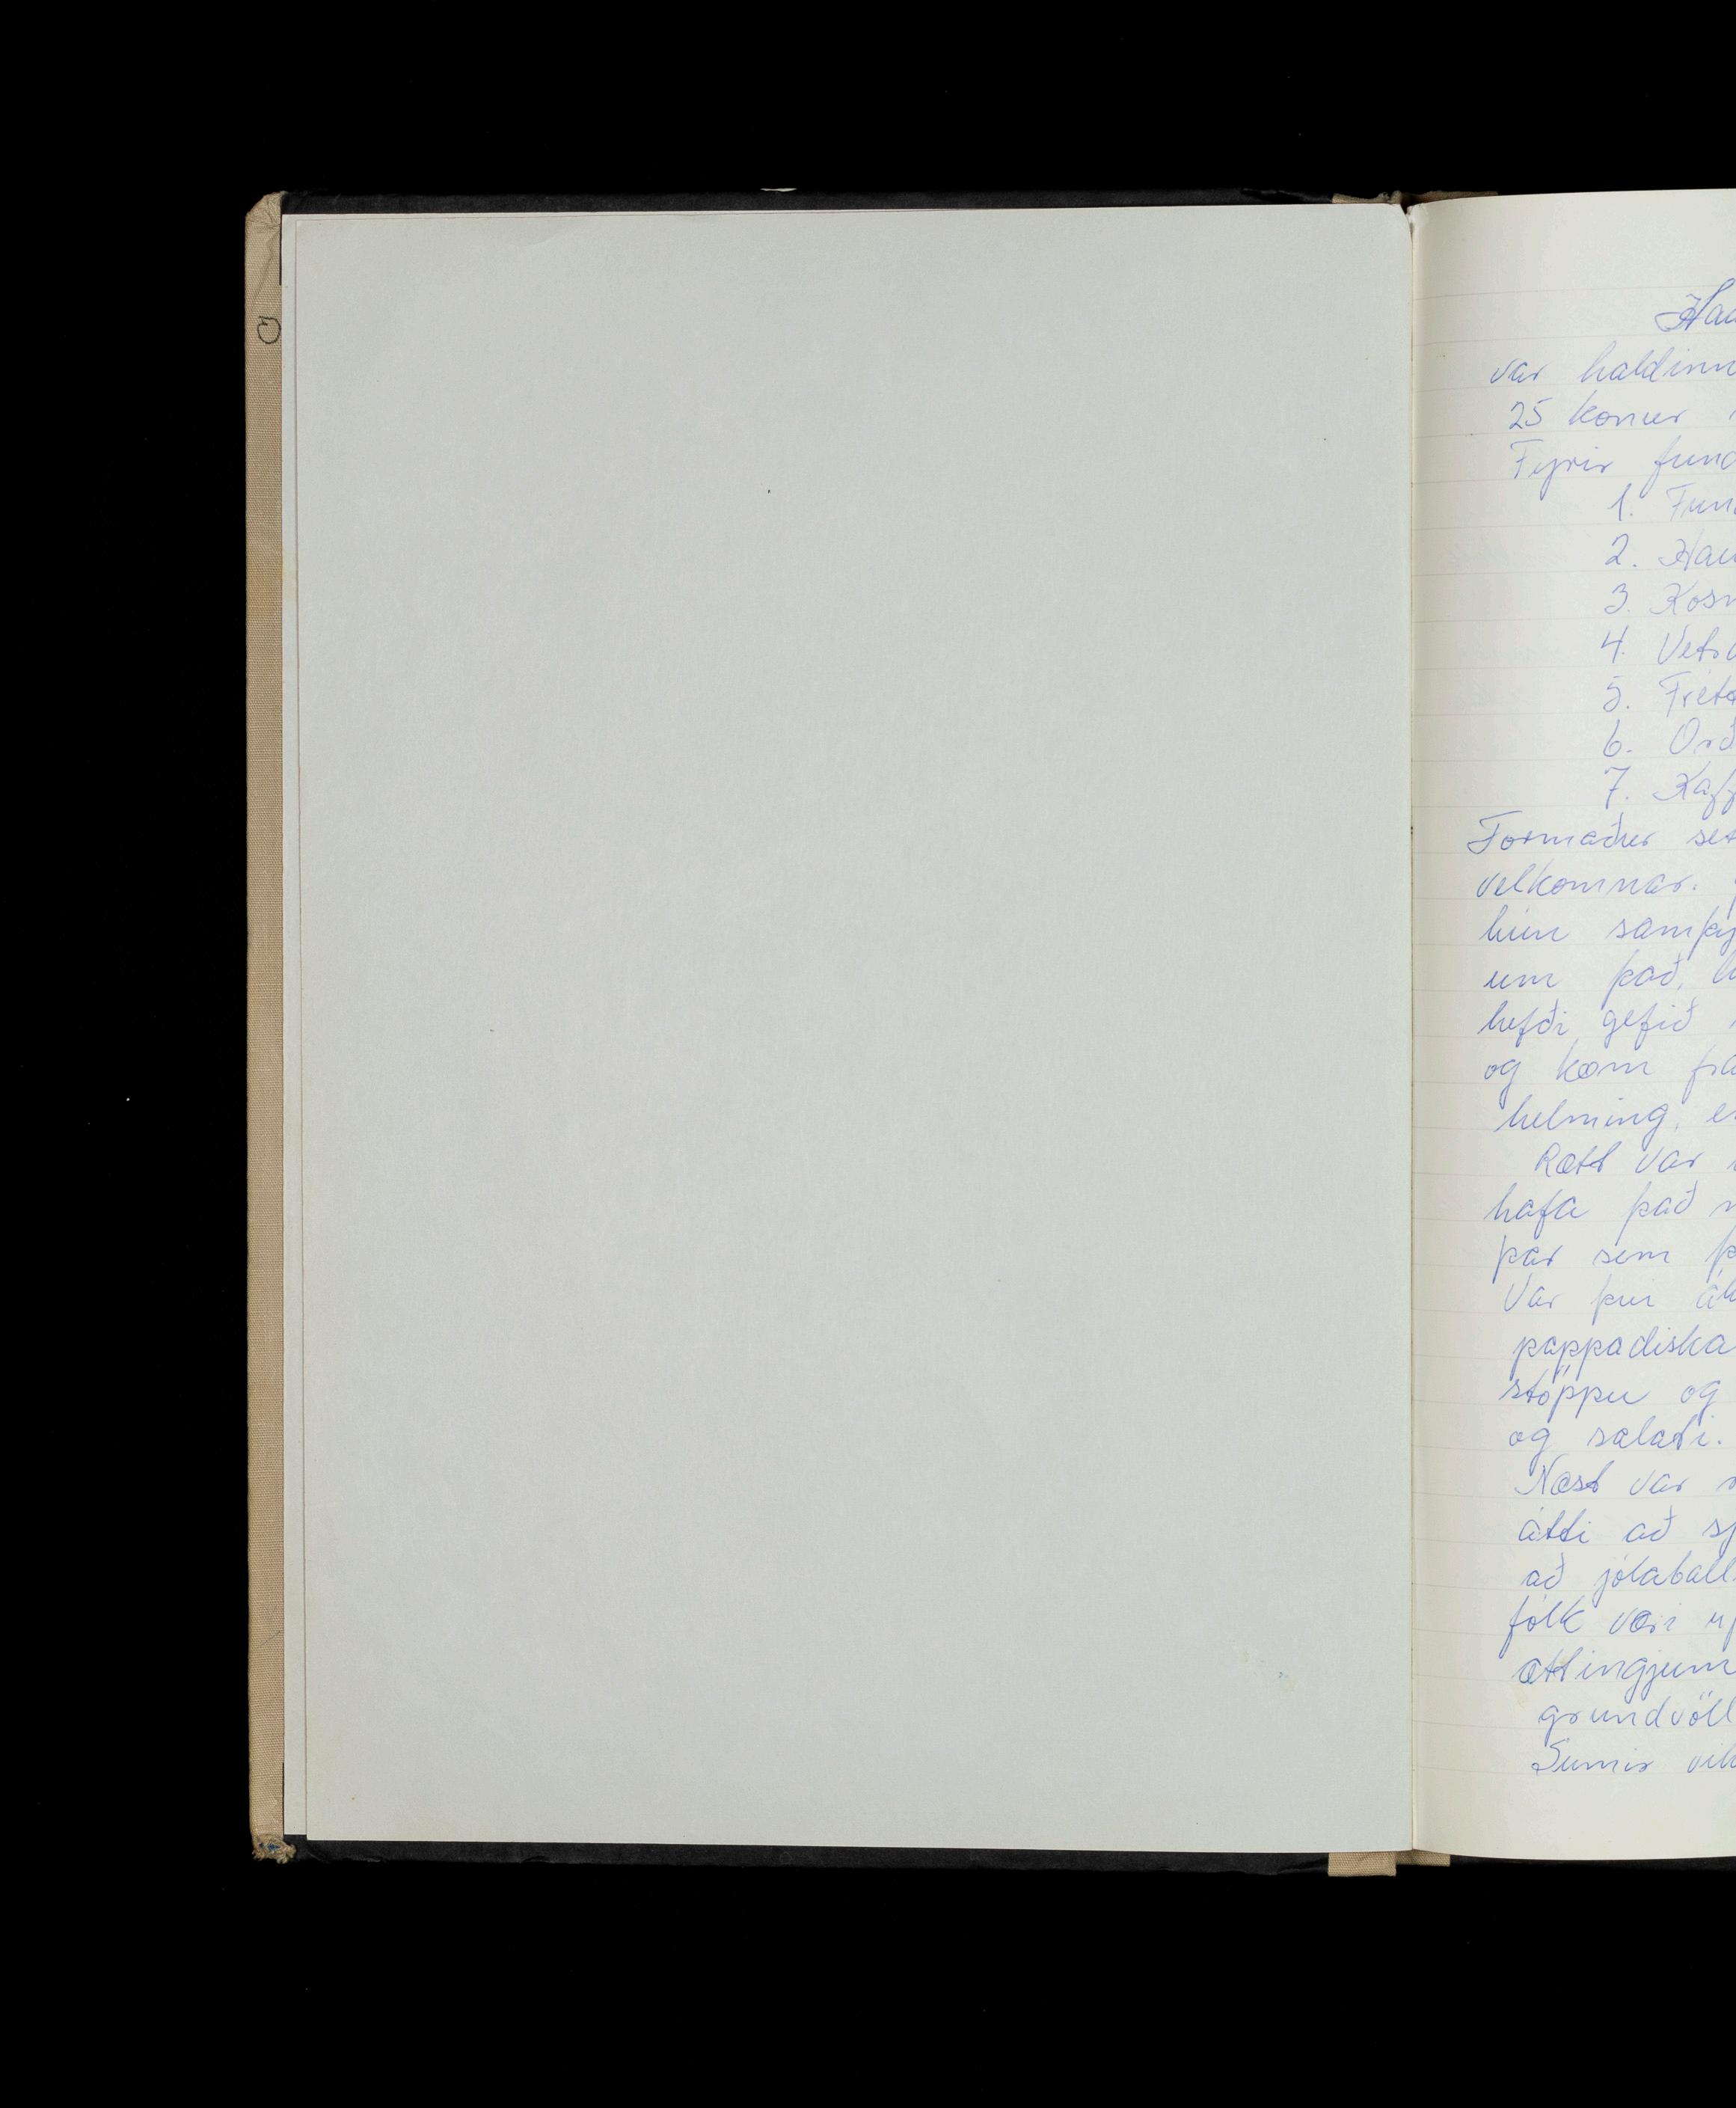 Hau
var haldinn
25 konur
Fyrir fund
1. Fun
2. Hau
3. Kosn
4. Vetra
5. Frétt
6. Orð
7. Kaff
Formaður set
velkomnar.
hún samþy
um það,
hefði gefið
og kom fra
helming, e
Rætt var
hafa það
þar sem þ
Var því ák
pappadiska
stöppu og
og salati.
Næst var
átti að sj
að jólaball
fólk væri up
ættingjum
grundvöll
Sumir vil